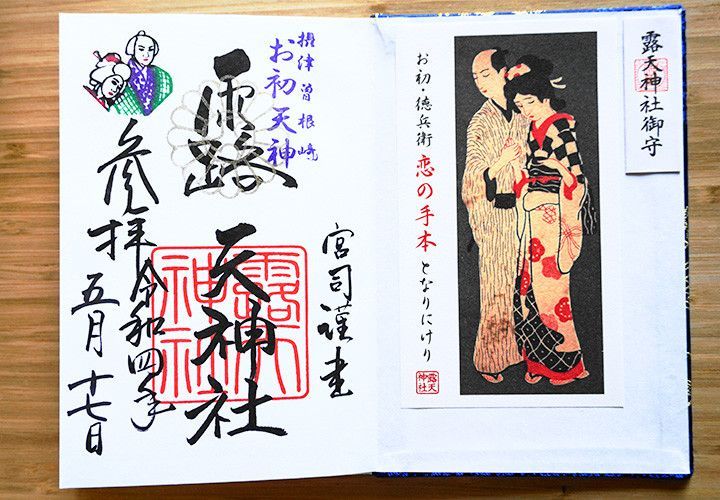 露天神社御守
お初・徳兵衛 恋の手本 となりにけり
露天神社
宮司謹書
摂津曽根崎
お初天神
露天神社
露天神社
参拝令和四年
五月十七日